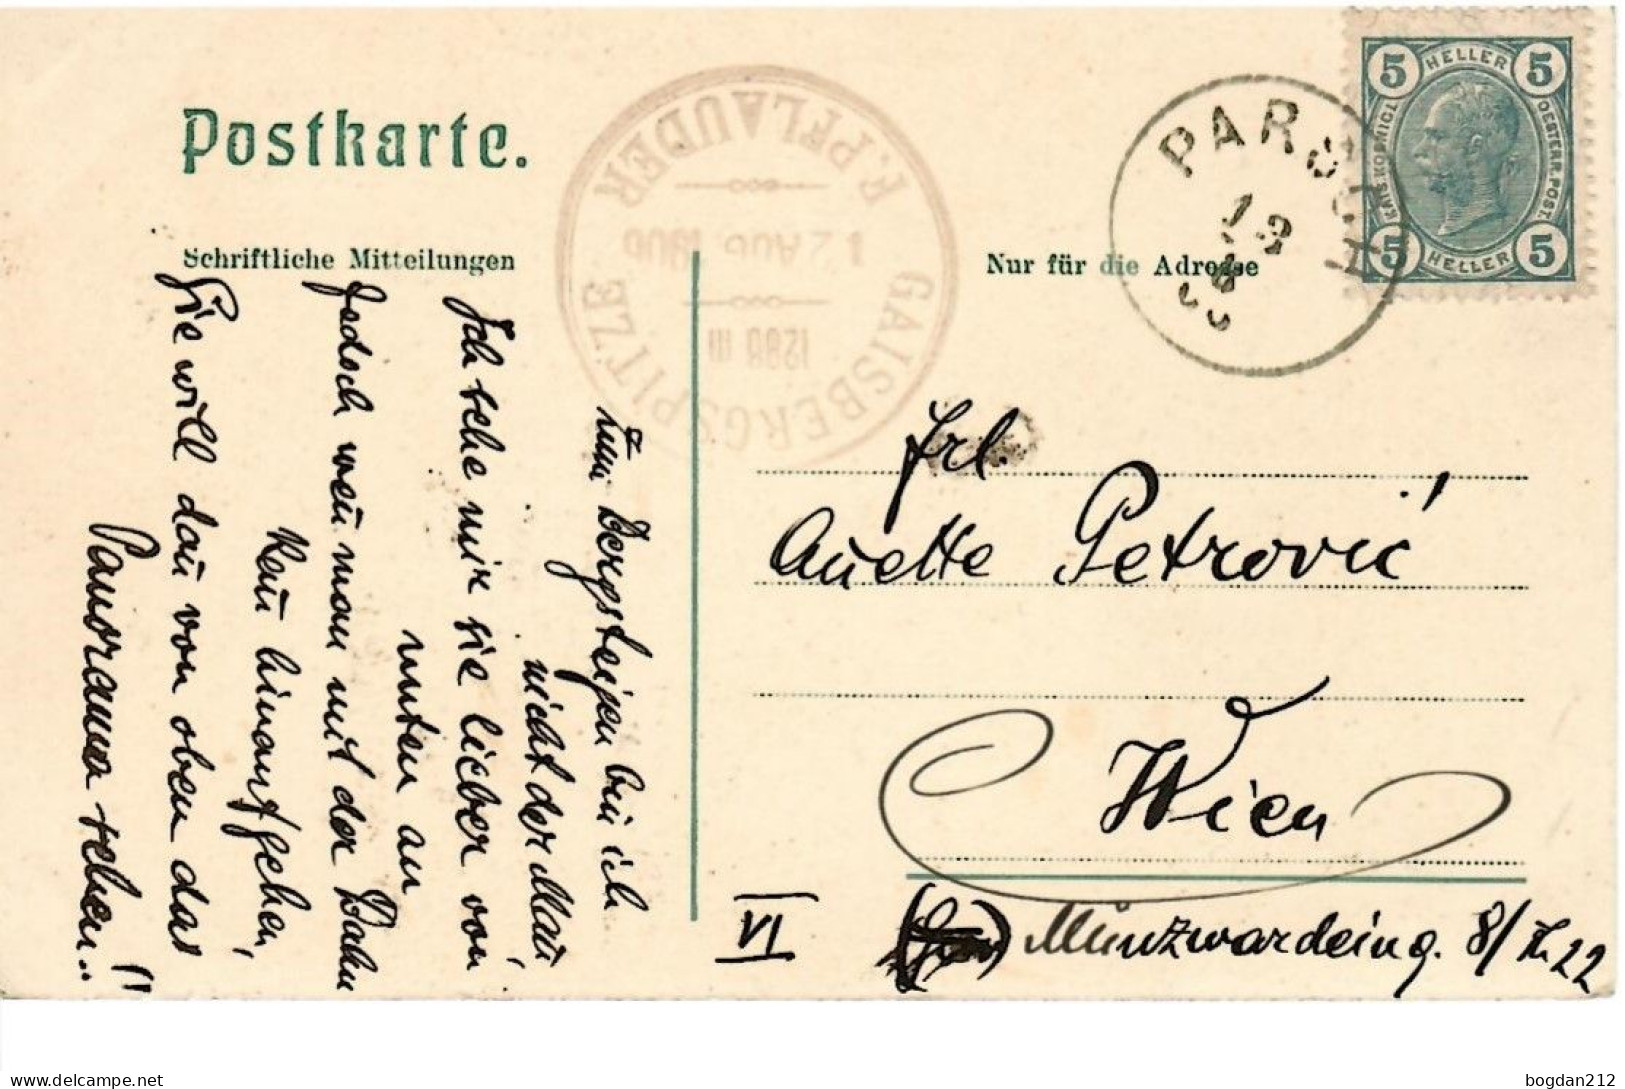 Postkarte.
Schriftliche Mitteilungen
Nur für die Adresse
F. PFLAUDER
12 AUG 1906
1286 m
GAISBERGSPITZE
PARSCH
HELLER
5 5
KAIS. KÖNIGL.
OESTERR. POST.
5 5
HELLER
Zum Bergsteigen bin ich
nicht der Mañ,
Ich sehe mir sie lieber von
unten an
Jedoch weñ man mit der Bahn
kañ hinaufgehen,
Sie will dañ von oben das
Panorama sehen!!
Frl.
Anette Petrović
Wien
VI
Münzwardeing. 8/Th. 22
delcampe.net
bogdan212